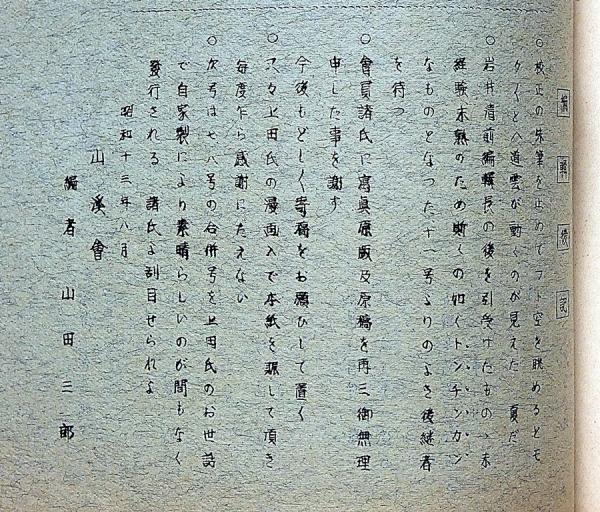 編輯後記
○校正の朱筆を止めてフト空を眺めるとモ
クモクと入道雲が動くのが見えた 夏だ
○岩井清前編輯長の後を引受けたものゝ未
経験未熟のため斯くの如くトンチンカン
なものとなつた十一号よりのよき後継者
を待つ
○會員諸氏に寫眞原版及原稿を再三御無理
申した事を謝す
今後もどしどし寄稿をお願ひして置く
○又々上田氏の漫画入で本紙を賑して頂き
毎度乍ら感謝にたえない
○次号は七八号の合併号を上田氏のお世話
で自家製により素晴らしいのが間もなく
發行される 諸氏よ刮目せられよ
昭和十三年八月
山溪會
編者 山田三郎